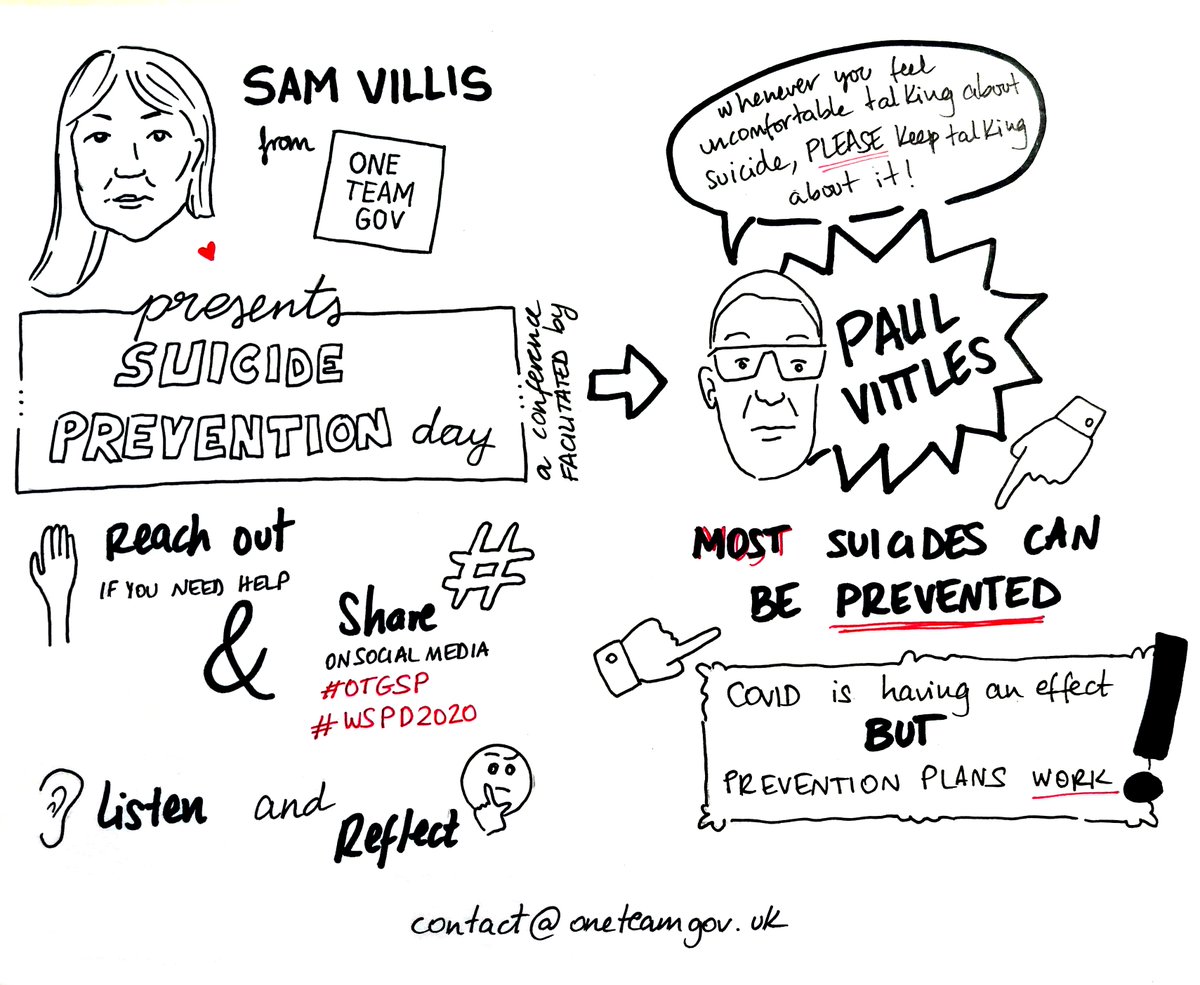 SAM VILLIS
from
ONE
TEAM
GOV
presents
SUICIDE
PREVENTION day
a conference
FACILITATED by
Reach out
IF YOU NEED HELP
&
#
Share
ON SOCIAL MEDIA
#OTGSP
#WSPD2020
Listen and
Reflect
whenever you feel
uncomfortable talking about
suicide, PLEASE keep talking
about it!
PAUL
VITTLES
MOST SUICIDES CAN
BE PREVENTED
COVID is having an effect
BUT
PREVENTION PLANS WORK
!
contact@oneteamgov.uk